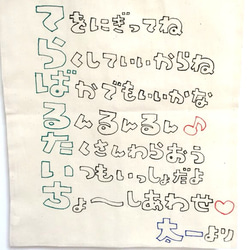 てをにぎってね
らくしていいからね
ばかでもいいかな
るんるんるん♪
たくさんわらおう
いつもいっしょだよ
ちょ〜しあわせ♡
太一より